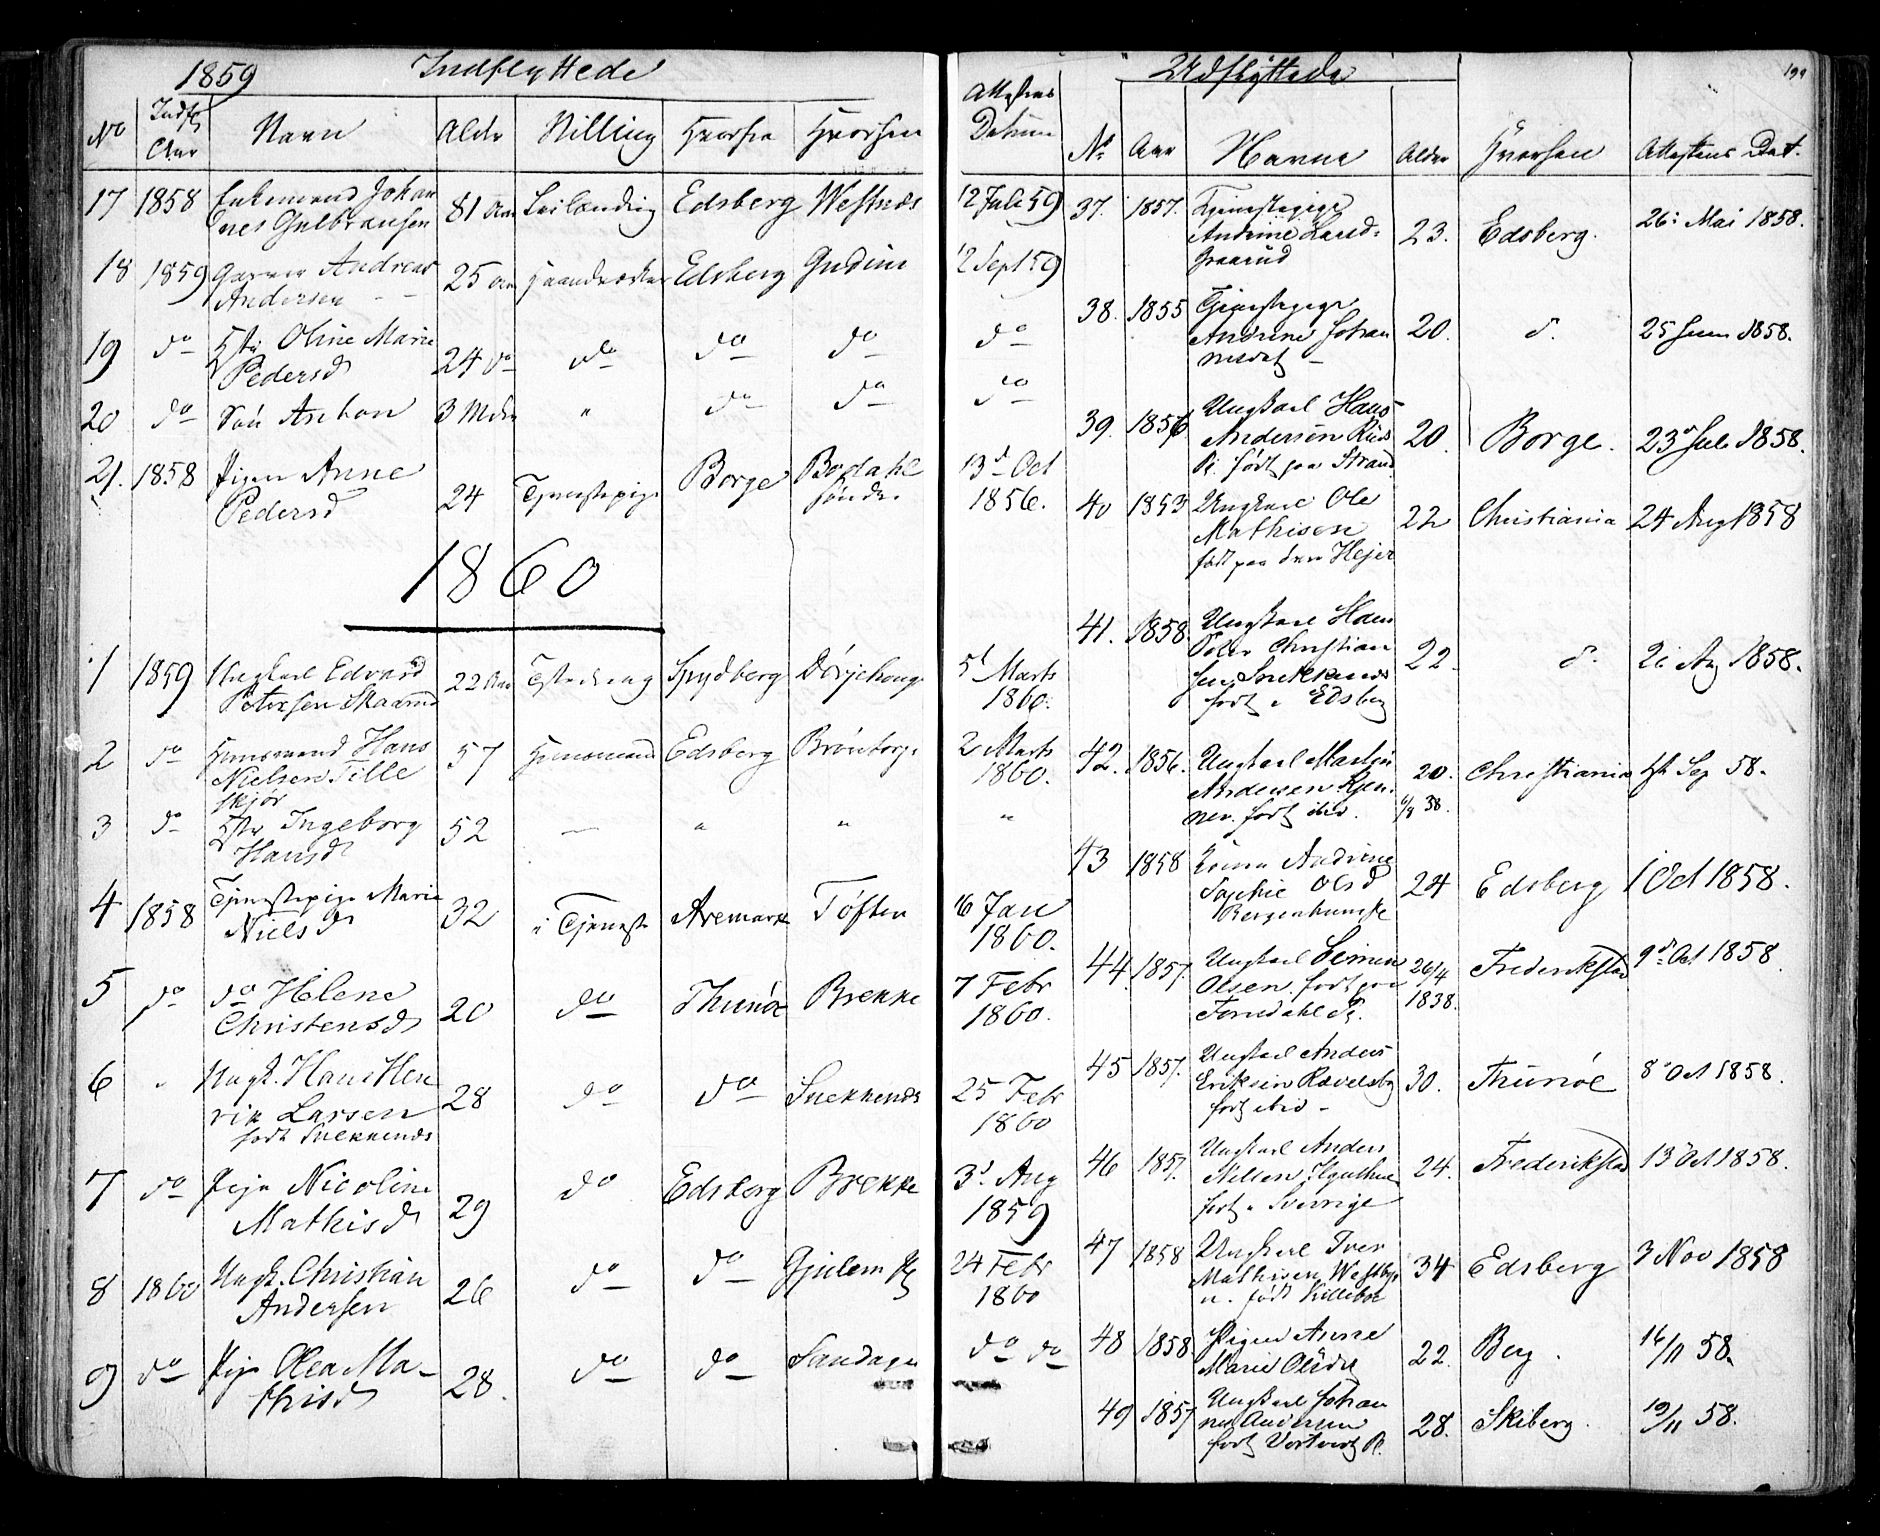 1859 Indflyttede
No Indfl. Aar Navn Alder Stilling Hvorfra Hvorhen Attestens Datum
17 1858 Enkemand Johan 81 Aar Edsberg Westnes 12 Juli 59
nes Gulbransen
18 1859 Andreas 25 Aar Edsberg Gudim 12 Sept 59
Andersen
19 do Hstr Oline Marie 24 do do do do do
Pedersd
20 do Søn Anton 3 Mdr " do do do
21. 1858 Pigen Anne 24 Tjenestepige Borge Bodahl 13d Oct
Pedersd søndre 1856.
1860
1 1859 Ungkarl Edvard 22 Aar Spydberg 5d Marts
Petersen Skaarud 1860.
2 do Huusmand Hans 57 Huusmand Edsberg 2 Marts
Nielsen Tille 1860.
skjør
3 do Hstr Ingeborg 52 — " " "
Hansd
4 1858 Tjenestepige Marie 32 i Tjeneste Aremark Tøften 16 Jan
Nielsd 1860.
5 do do Helene 20 do Thunøe Brekke 7 Febr
Christensd 1860.
6 " Ungk. Hans Hen 28 do do Snekkenes 25 Febr
rik Larsen 1860
født Snekkenes
7 do Pige Nicoline 29 do Edsberg Brekke 3d Aug
Mathisd 1859
8 1860 Ungk. Christian 26 do do Gjulem 24 Febr
Andersen 1860
9 do Pige Olea Ma- 28. do do do do
thisd
Udflyttede
No Aar Navne Alder Hvorhen Attestens Dat.
37. 1857. Tjenestepige
Andrine Larsd. 23. Edsberg. 26: Mai 1858.
Graarud
38. 1855 Tjenestepige
Andrine Johan 20. d. 25 Juni 1858.
nesdt —
39. 1856 Ungkarl Hans
Andersen 20. Borge. 23 Juli 1858.
Pl. født paa Strand
40 1853 Ungkarl Ole
Mathisen 22 Christiania 24 Aug 1858
født paa
41. 1858 Ungkarl Hans
Peter Christian 22. d. Aug 1858.
sen Snekkenes
født i Edsberg
42. 1856. Ungkarl Martin 20. Christiania Sep 58.
Andersen
født ibid. 38.
43 1858 Andrine
Sophie Olsd 24 Edsberg 1 Oct 1858.
44. 1857. Ungkarl Simen 26/4 Frederikstad 9d Oct 1858.
Olsen, født paa 1838.
45 1857. Ungkarl Anders
Eriksen 30. Thunöe 8 Oct 1858.
født ibid —
46 1857. Ungkarl Anders
Nilsen 24. Frederikstad 13 Oct 1858.
født i Sverrige
47 1858 Ungkarl Iver
Mathisen 34 Edsberg 3 Nov 1858
født
48 1858. Pigen Anne
Marie Olsdt 22. Berg. 16/11 58.
49 1857 Ungkarl Johan
nes Andersen 28. Skiberg. 19/11 58.
født